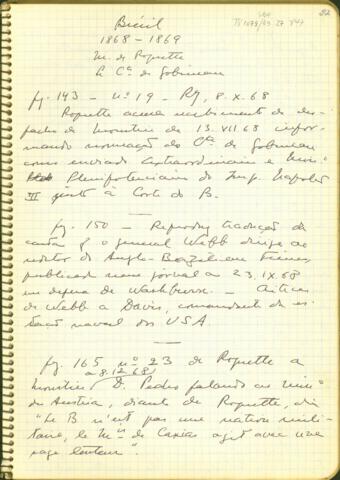 22
Brésil
1868-1869
M. de Roquette
le Cte de Gobineau
fg. 143 - nº 19 - RJ, 8.X.68
Roquette acusa recebimento do des-
pacho de Moustier de 13.VII.68 infor-
mando nomeação do Cte de Gobineau
como enviado extraordinaire e Min.º
Plenipotenciaire do Imp. Napoleão
III junto à Corte do B.
fg. 150 - Reproduz tradução da
carta q o general Webb dirige ao
redator do Anglo-Brazilian Times,
publicada nesse jornal a 23.IX.68
em defesa de Washburn. -
de Webb a Davis, comandante da es-
tação naval dos USA
fg. 165 nº 23 de Roquette a
a 8.12.68
Moustier D. Pedro falando ao Min.º
da Austria, diante de Roquette, diz
"Le B n'est pas une nation mili-
taire, le Mis de Caxias agit avec une
sage lenteur".